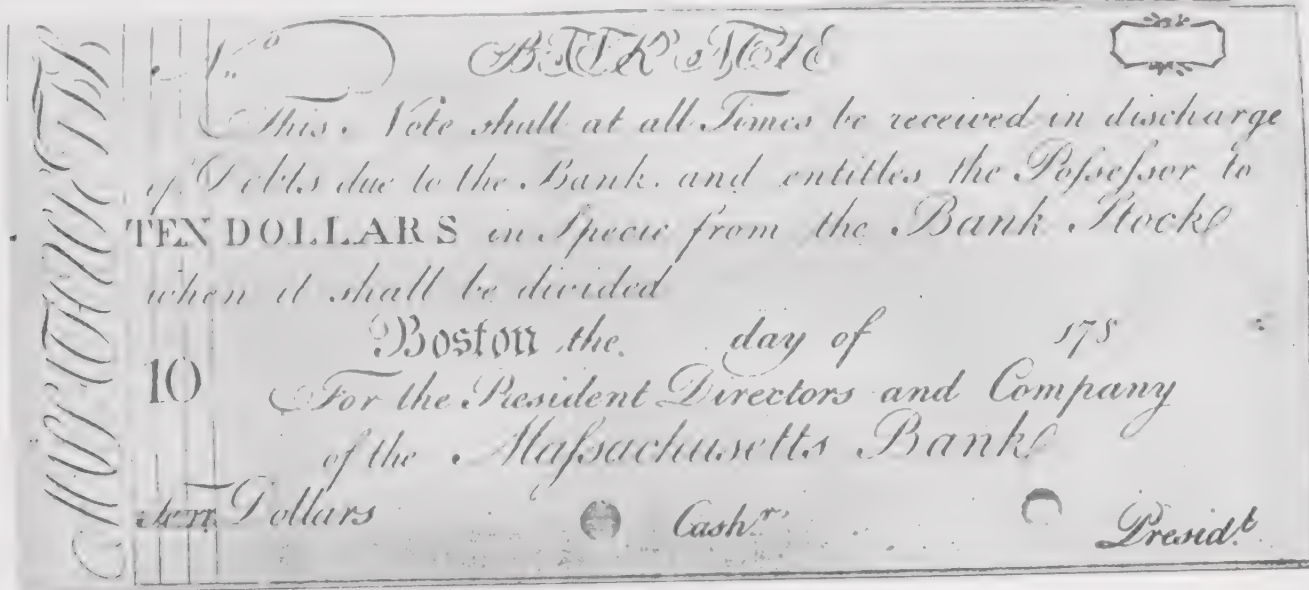 N.º
BANK NOTE
This Note shall at all Times be received in discharge
of Debts due to the Bank. and entitles the Poſseſsor to
TEN DOLLARS in Specie from the Bank Stock
when it shall be divided
Boston the. day of 178
10
For the President Directors and Company
of the Maſsachusetts Bank
Ten Dollars Cashʳ. Presidᵗ.